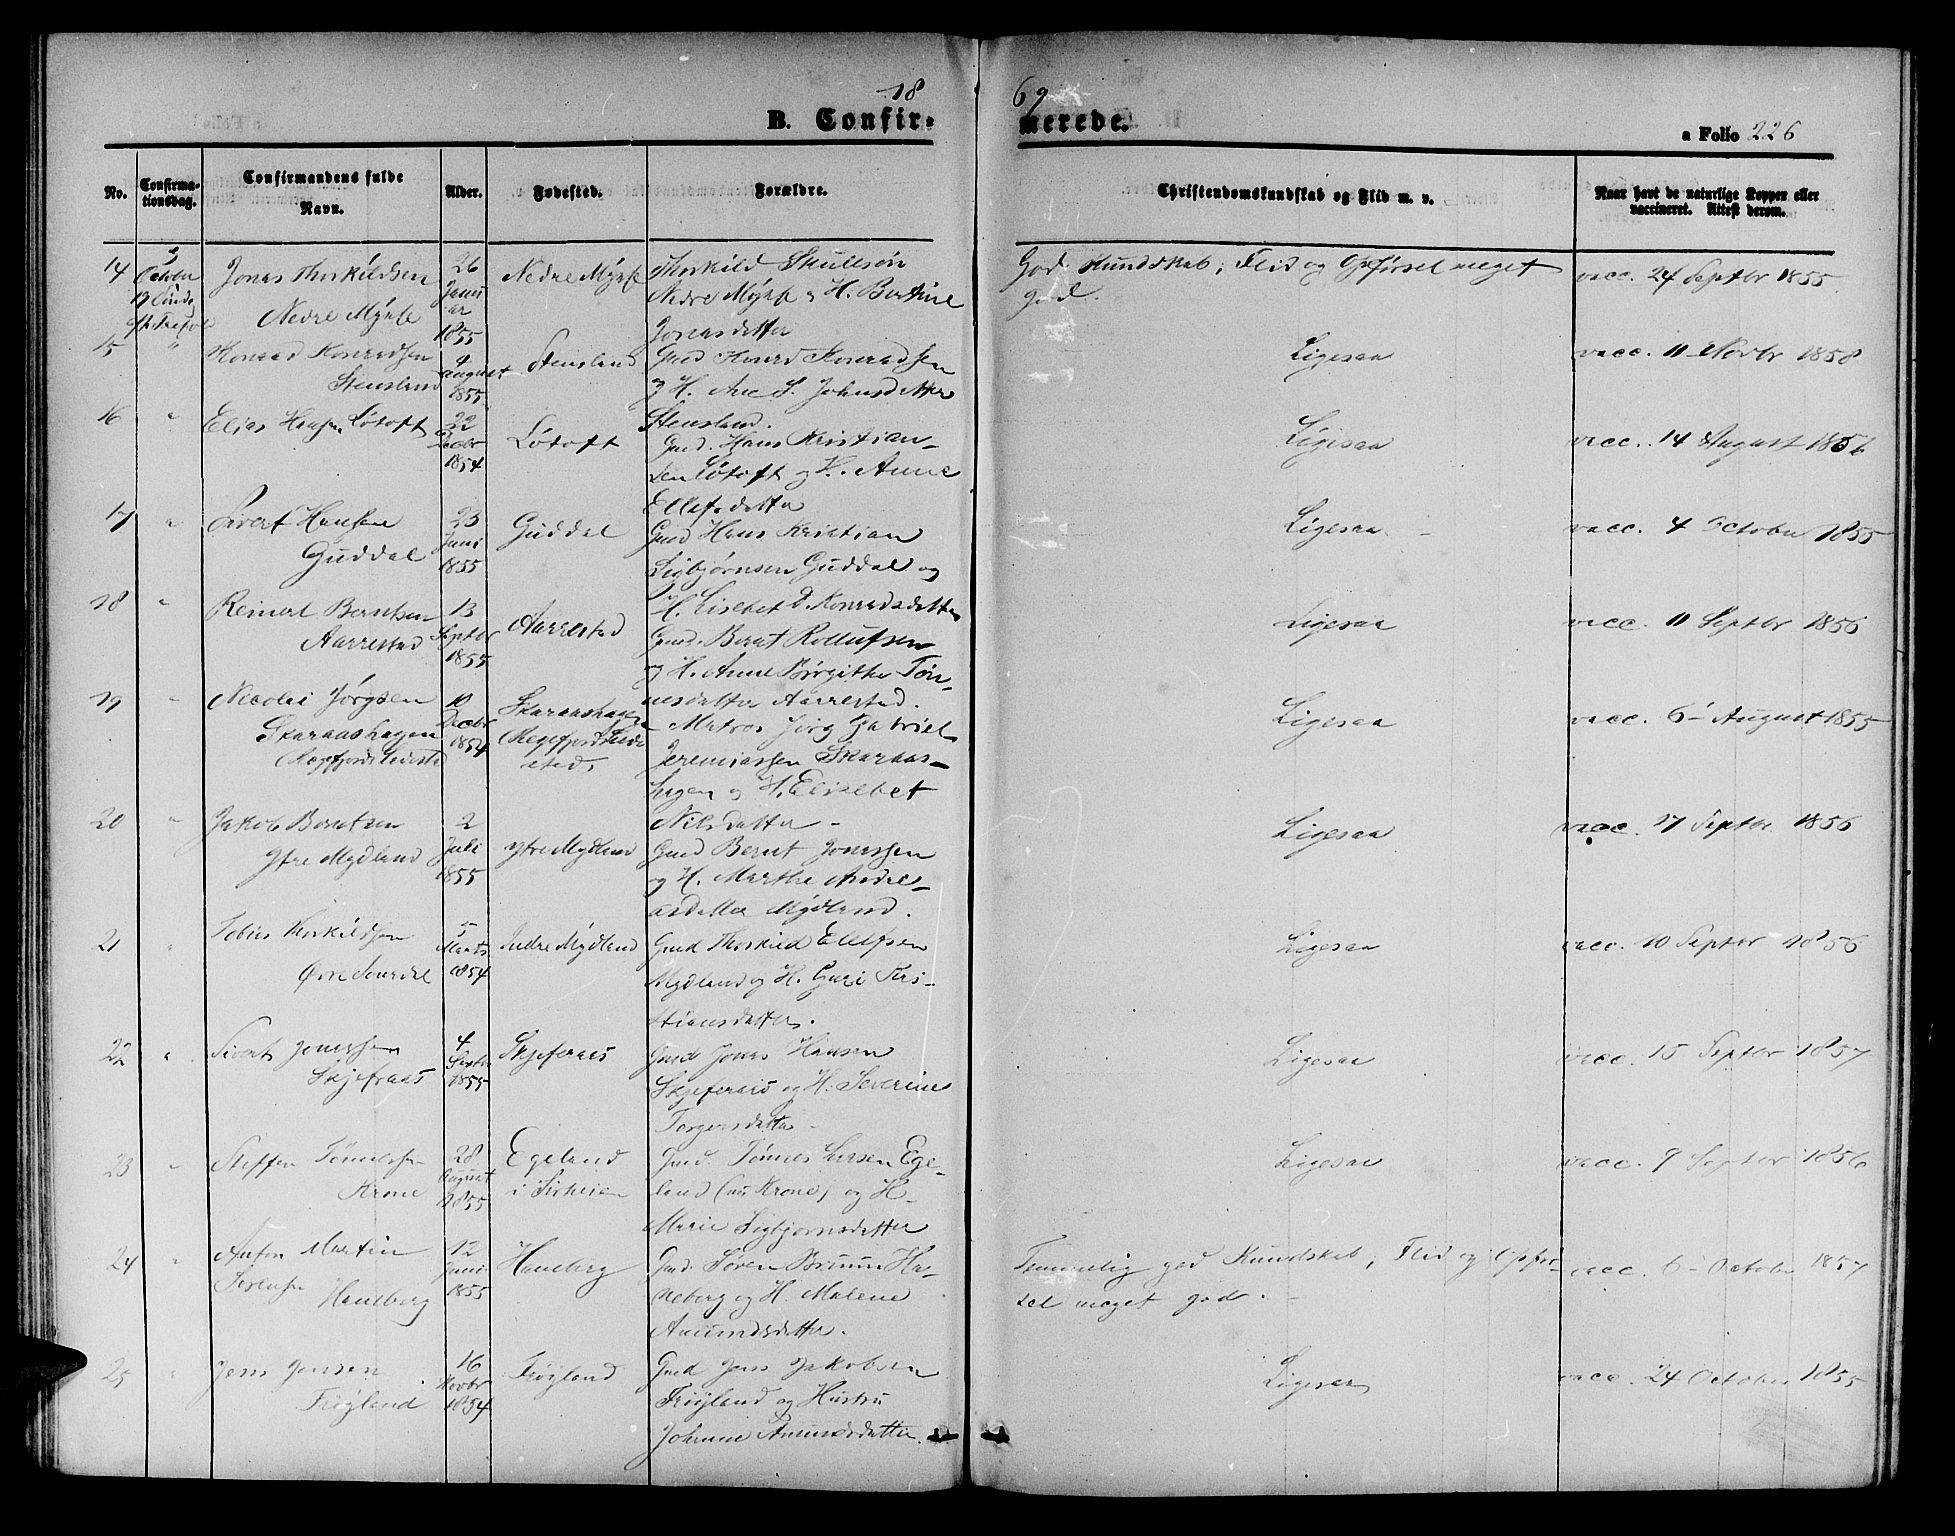 18 69
B. Confirmerede.
a Folio 226
No.
Confirmationsdag.
Confirmandens fulde Navn.
Alder.
Fødested.
Forældre.
Christendomskundskab og Flid m. v.
Naar havt de naturlige Kopper eller vaccineret. Attest derom.
14
October
Jonas Thorkildsen
Nedre Mysse
26 Januar 1855
Nedre Mysse
Thorkild Skullsøn
Nedre Mysse og H. Bertine
Jonasdatter
God Kundskab, Flid og Opførsel meget
god.
vacc. 24 Septbr 1855
15 "
Konrad Konradsen
Stensland
4 August 1855
Stensland
Gmd Konrad Konradsen
og H. Ane S. Johnsdatter
Stensland.
Ligesaa
vacc. 11 Novbr 1858
16 "
Elias Hansen Løtoft
22 Decbr 1854
Løtoft
Gmd. Hans Kristian-
sen Løtoft og H. Anne
Ellefsdatter
Ligesaa
vacc. 14 August 1856
17 "
Sivert Hansen
Guddal
23 Juni 1855
Guddal
Gmd Hans Kristian
Sigbjørnsen Guddal og
H. Lisebet D. Konradsdatter
Ligesaa
vacc. 4 October 1855
18 "
Reinert Berntsen
Aarrestad
13 Septbr 1855
Aarrestad
Gmd. Bernt Rollufsen
og H. Anne Birgithe Tøn-
nesdatter Aarrestad.
Ligesaa
vacc. 11 Septbr 1856
19 "
Nicolai Jørgsen
Skaraashagen
10 Decbr 1854
Skaraashagen
Matros Jørg Gabriel
Jeremiassen Skaraas-
hagen og H. Elisebet
Nilsdatter -
Ligesaa
vacc. 6 August 1855
20 "
Jakob Berntsen
Ytre Mydland
2 Juli 1855
Ytre Mydland
Gmd Bernt Jonassen
og H. Marthe Andre-
asdatter Mydland.
Ligesaa
vacc. 17 Septbr 1856
21 "
Tobias Thorkildsen
5 Marts 1854
Indre Mydland
Gmd Thorkild Ellefsen
Mydland og H. Guri Kri-
stiansdatter.
Ligesaa
vacc. 10 Septbr 1856
22 "
Sivert Jonassen
Skjefraas
4 Septbr 1855
Skjeferaas
Gmd Jonas Hansen
Skjeferaas og H. Severine
Torgersdatter -
Ligesaa
vacc. 15 Septbr 1857
23 "
Steffen Tønnessen
Krone
28 August 1855
Egeland
i Sirheien
Gmd. Tønnes Larsen Ege-
land (nu Krone) og H.
Marie Sigbjørnsdatter
Ligesaa
vacc. 9 Septbr 1856
24 "
Anton Martin
Sørensen
Haneberg
12 Juni 1855
Haneberg
Gmd. Søren Bruun Ha-
neberg og H. Malene
Amundsdatter.
Temmelig god Kundskab, Flid og Opfør-
sel meget god. -
vacc. 6 October 1857
25 "
Jens Jensen
Frøyland
16 Novbr 1854
Frøyland
Gmd Jens Jakobsen
Frøyland og Hustru
Johanne Amundsdatter.
Ligesaa
vacc. 24 October 1855